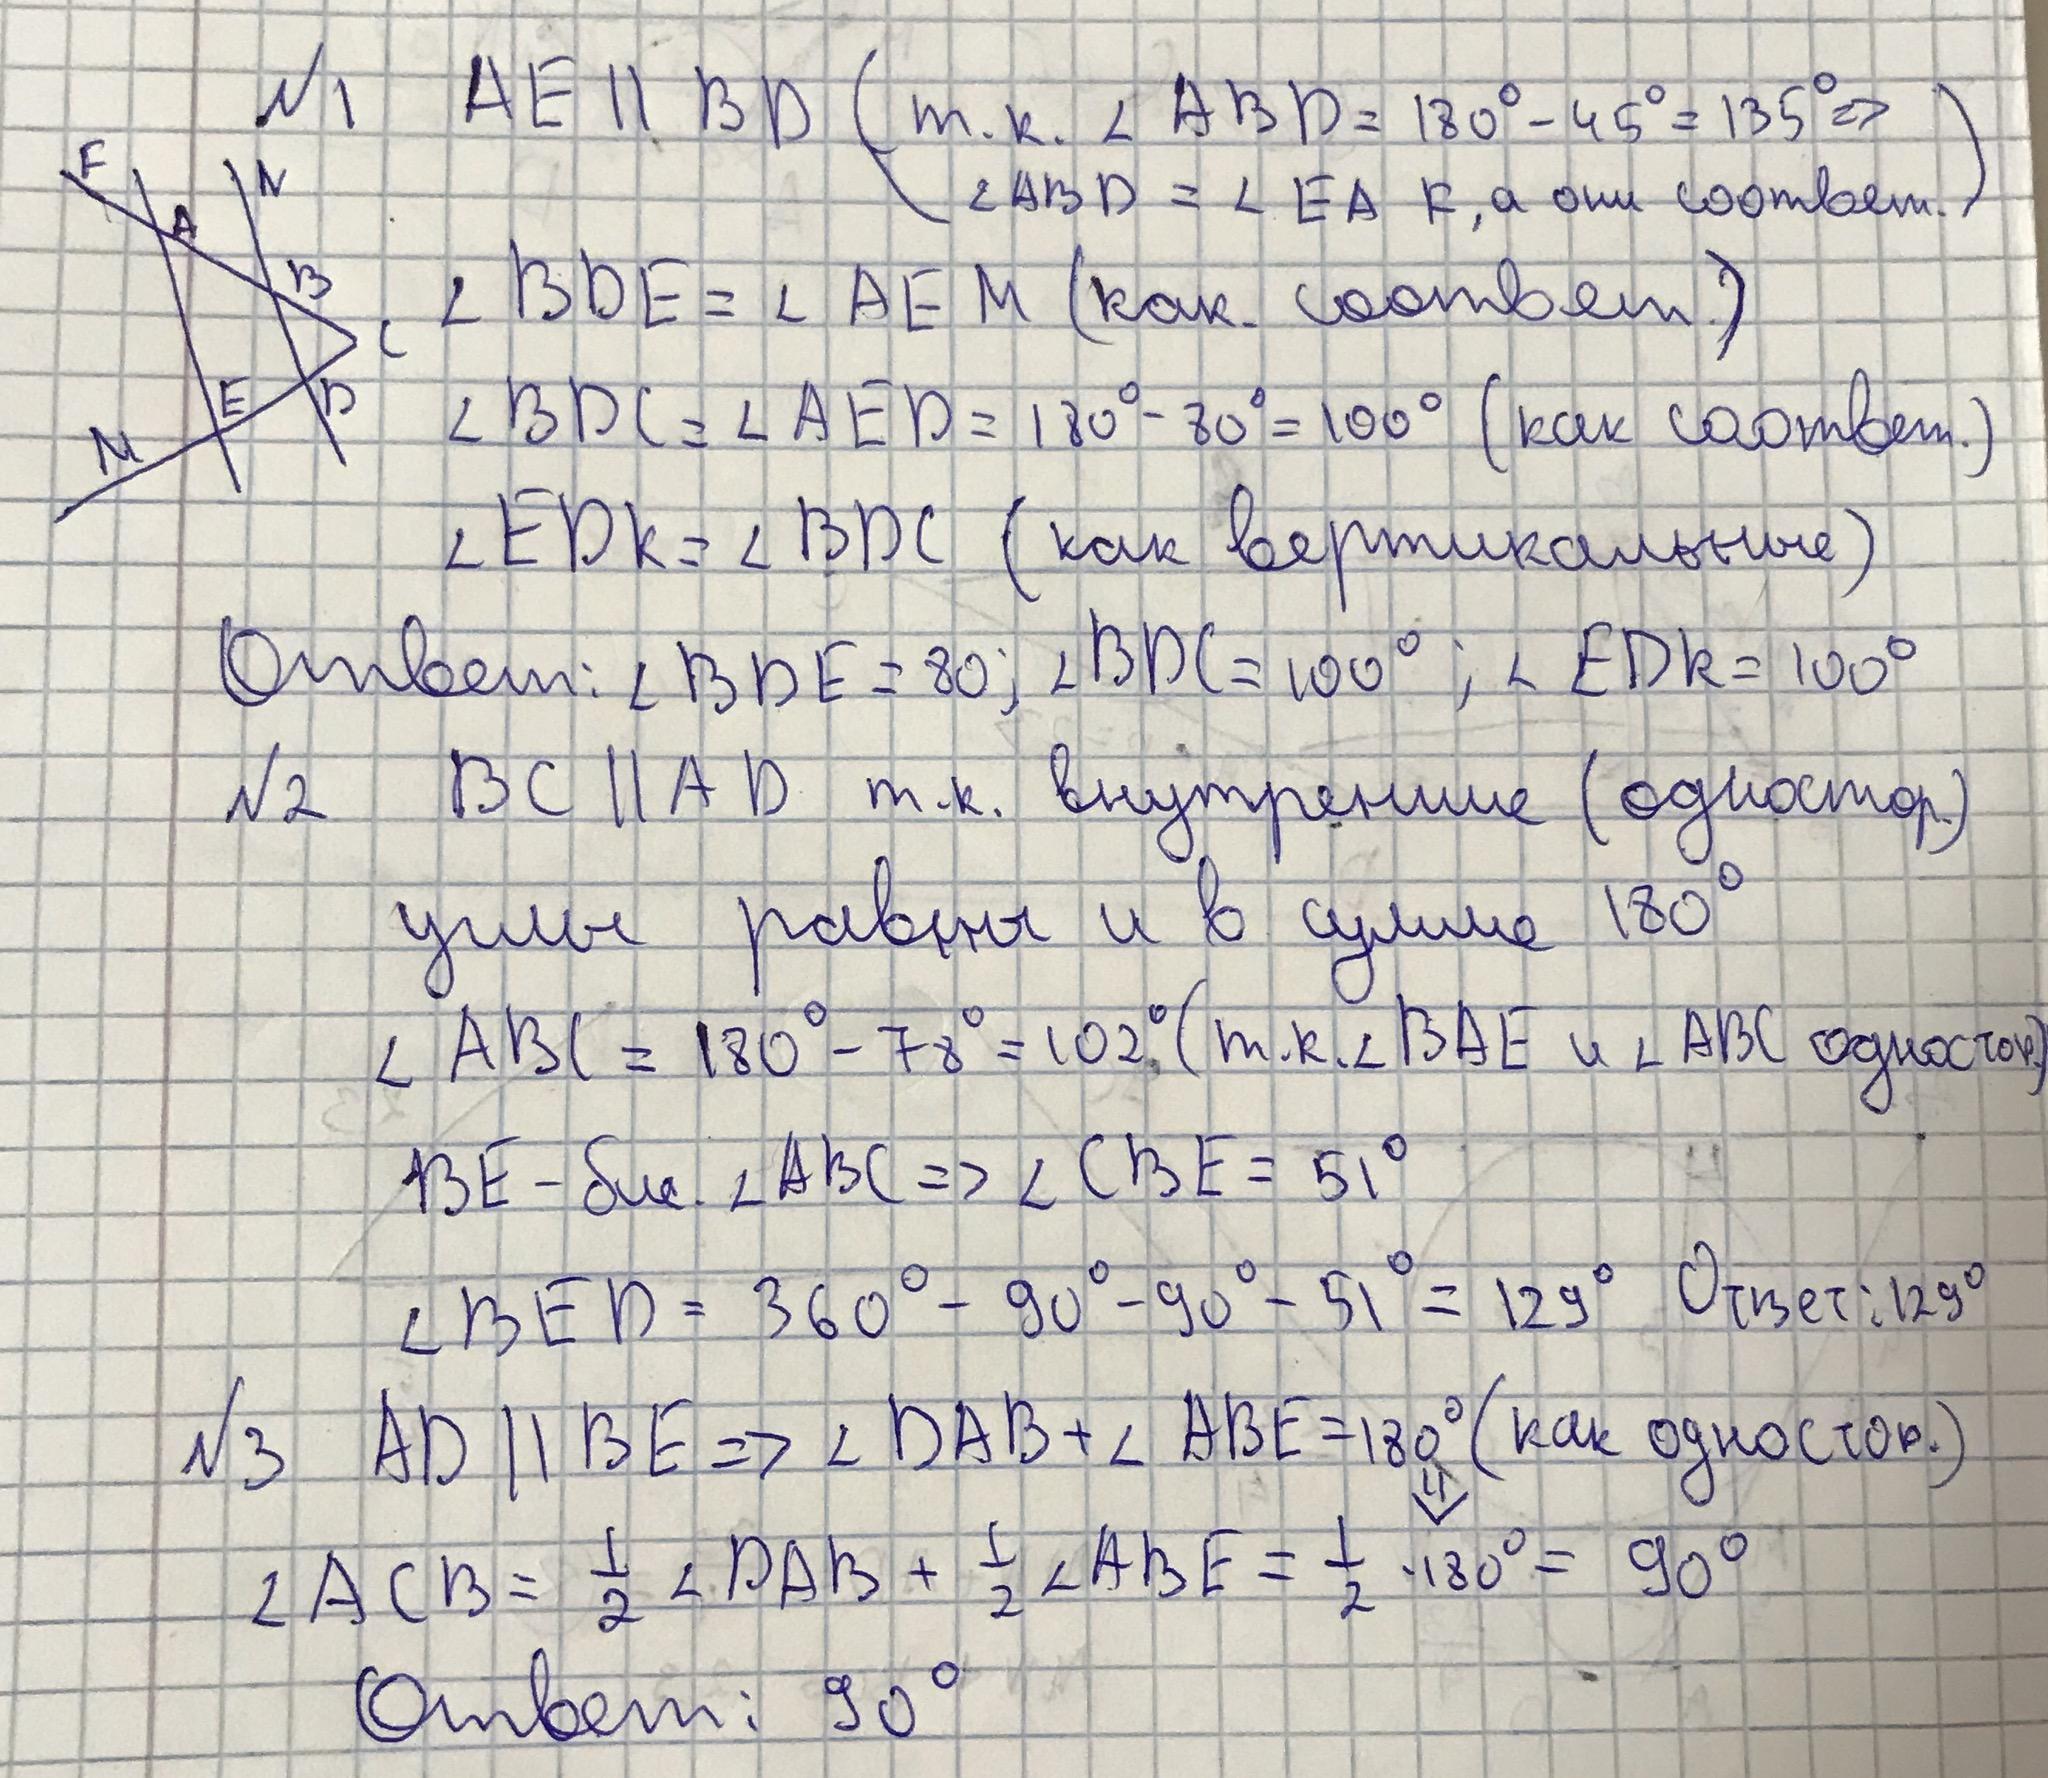 N1 AE || BD (т.к. ∠ABD = 180° - 45° = 135° =>
∠ABD = ∠EAF, а они соответ.)
F
N
A
B
C
E
D
M
∠BDE = ∠AEM (как. соответ.)
∠BDC = ∠AED = 180° - 80° = 100° (как соответ.)
∠EDK = ∠BDC (как вертикальные)
Ответ: ∠BDE = 80; ∠BDC = 100°; ∠EDK = 100°
N2 BC || AD т.к. внутрение (одностор.)
углы равны и в сумме 180°
∠ABC = 180° - 78° = 102° (т.к. ∠BAE и ∠ABC одностор.)
BE - бис. ∠ABC => ∠CBE = 51°
∠BED = 360° - 90° - 90° - 51° = 129° Ответ: 129°
N3 AD || BE => ∠DAB + ∠ABE = 180° (как одностор.)
⇓
∠ACB = 1/2 ∠DAB + 1/2 ∠ABE = 1/2 · 180° = 90°
Ответ: 90°